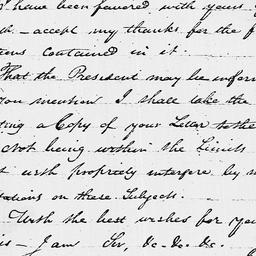 I have been favored with yours
th - accept my thanks for the f
tions contained in it.
That the President may be infor
You mention I shall take the
ting a Copy of your Letter to the
Not being within the Limits
t with propriety interfere by m
tations on these Subjects.
With the best wishes for you
is - I am Sir, &c. &c. &c.